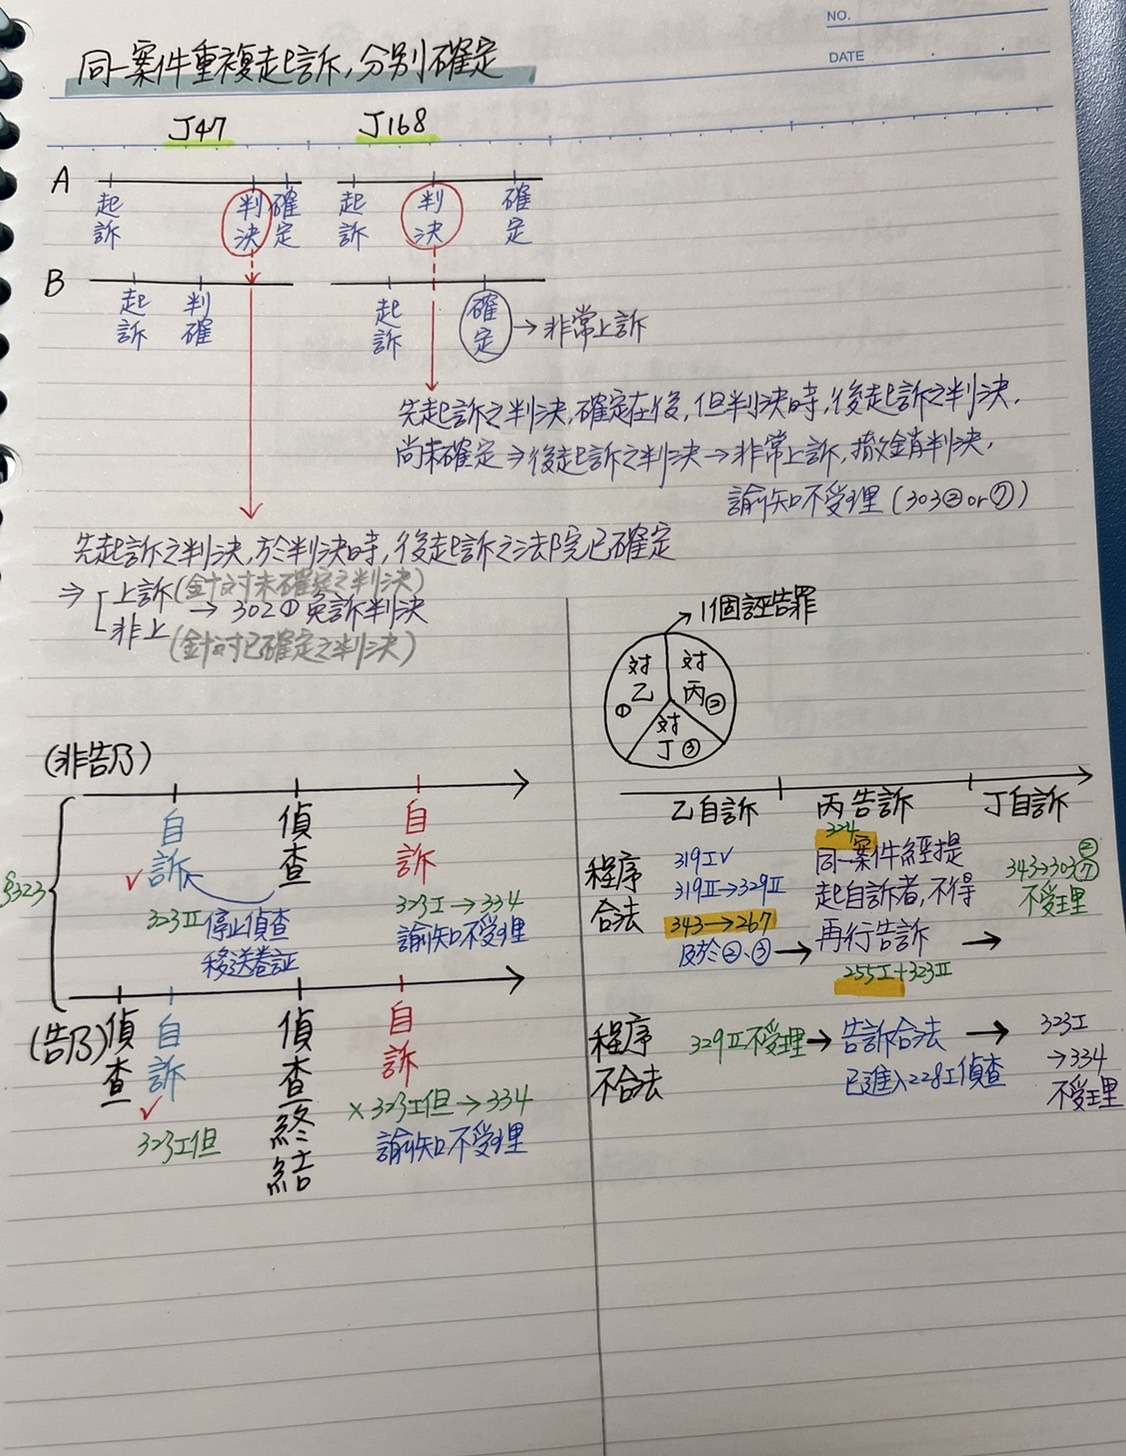 NO.
DATE
同一案件重複起訴,分別確定
J47
J168
A
起訴
判決
確定
起訴
判決
確定
B
起訴
判確
起訴
確定
→非常上訴
先起訴之判決,確定在後,但判決時,後起訴之判決,
尚未確定⇒後起訴之判決→非常上訴,撤銷判決,
諭知不受理(303②or⑦)
先起訴之判決,於判決時,後起訴之法院已確定
⇒上訴(針對未確定之判決)
→302①免訴判決
非上(針對已確定之判決)
→1個誣告罪
對乙①
對丙②
對丁③
(非告乃)
§323
自訴
偵查
自訴
✓
323Ⅱ停止偵查
移送卷証
323Ⅰ→334
諭知不受理
(告乃)
偵查
自訴
偵查終結
自訴
✓
323Ⅰ但
×323Ⅰ但→334
諭知不受理
乙自訴
丙告訴
丁自訴
程序
合法
319Ⅰ✓
319Ⅱ→329Ⅱ
343→267
及於②、③→
324
同一案件經提
起自訴者,不得
再行告訴→
255Ⅰ+323Ⅱ
343→303②⑦
不受理
程序
不合法
329Ⅱ不受理→
告訴合法→
已進入228Ⅰ偵查
323Ⅰ
→334
不受理